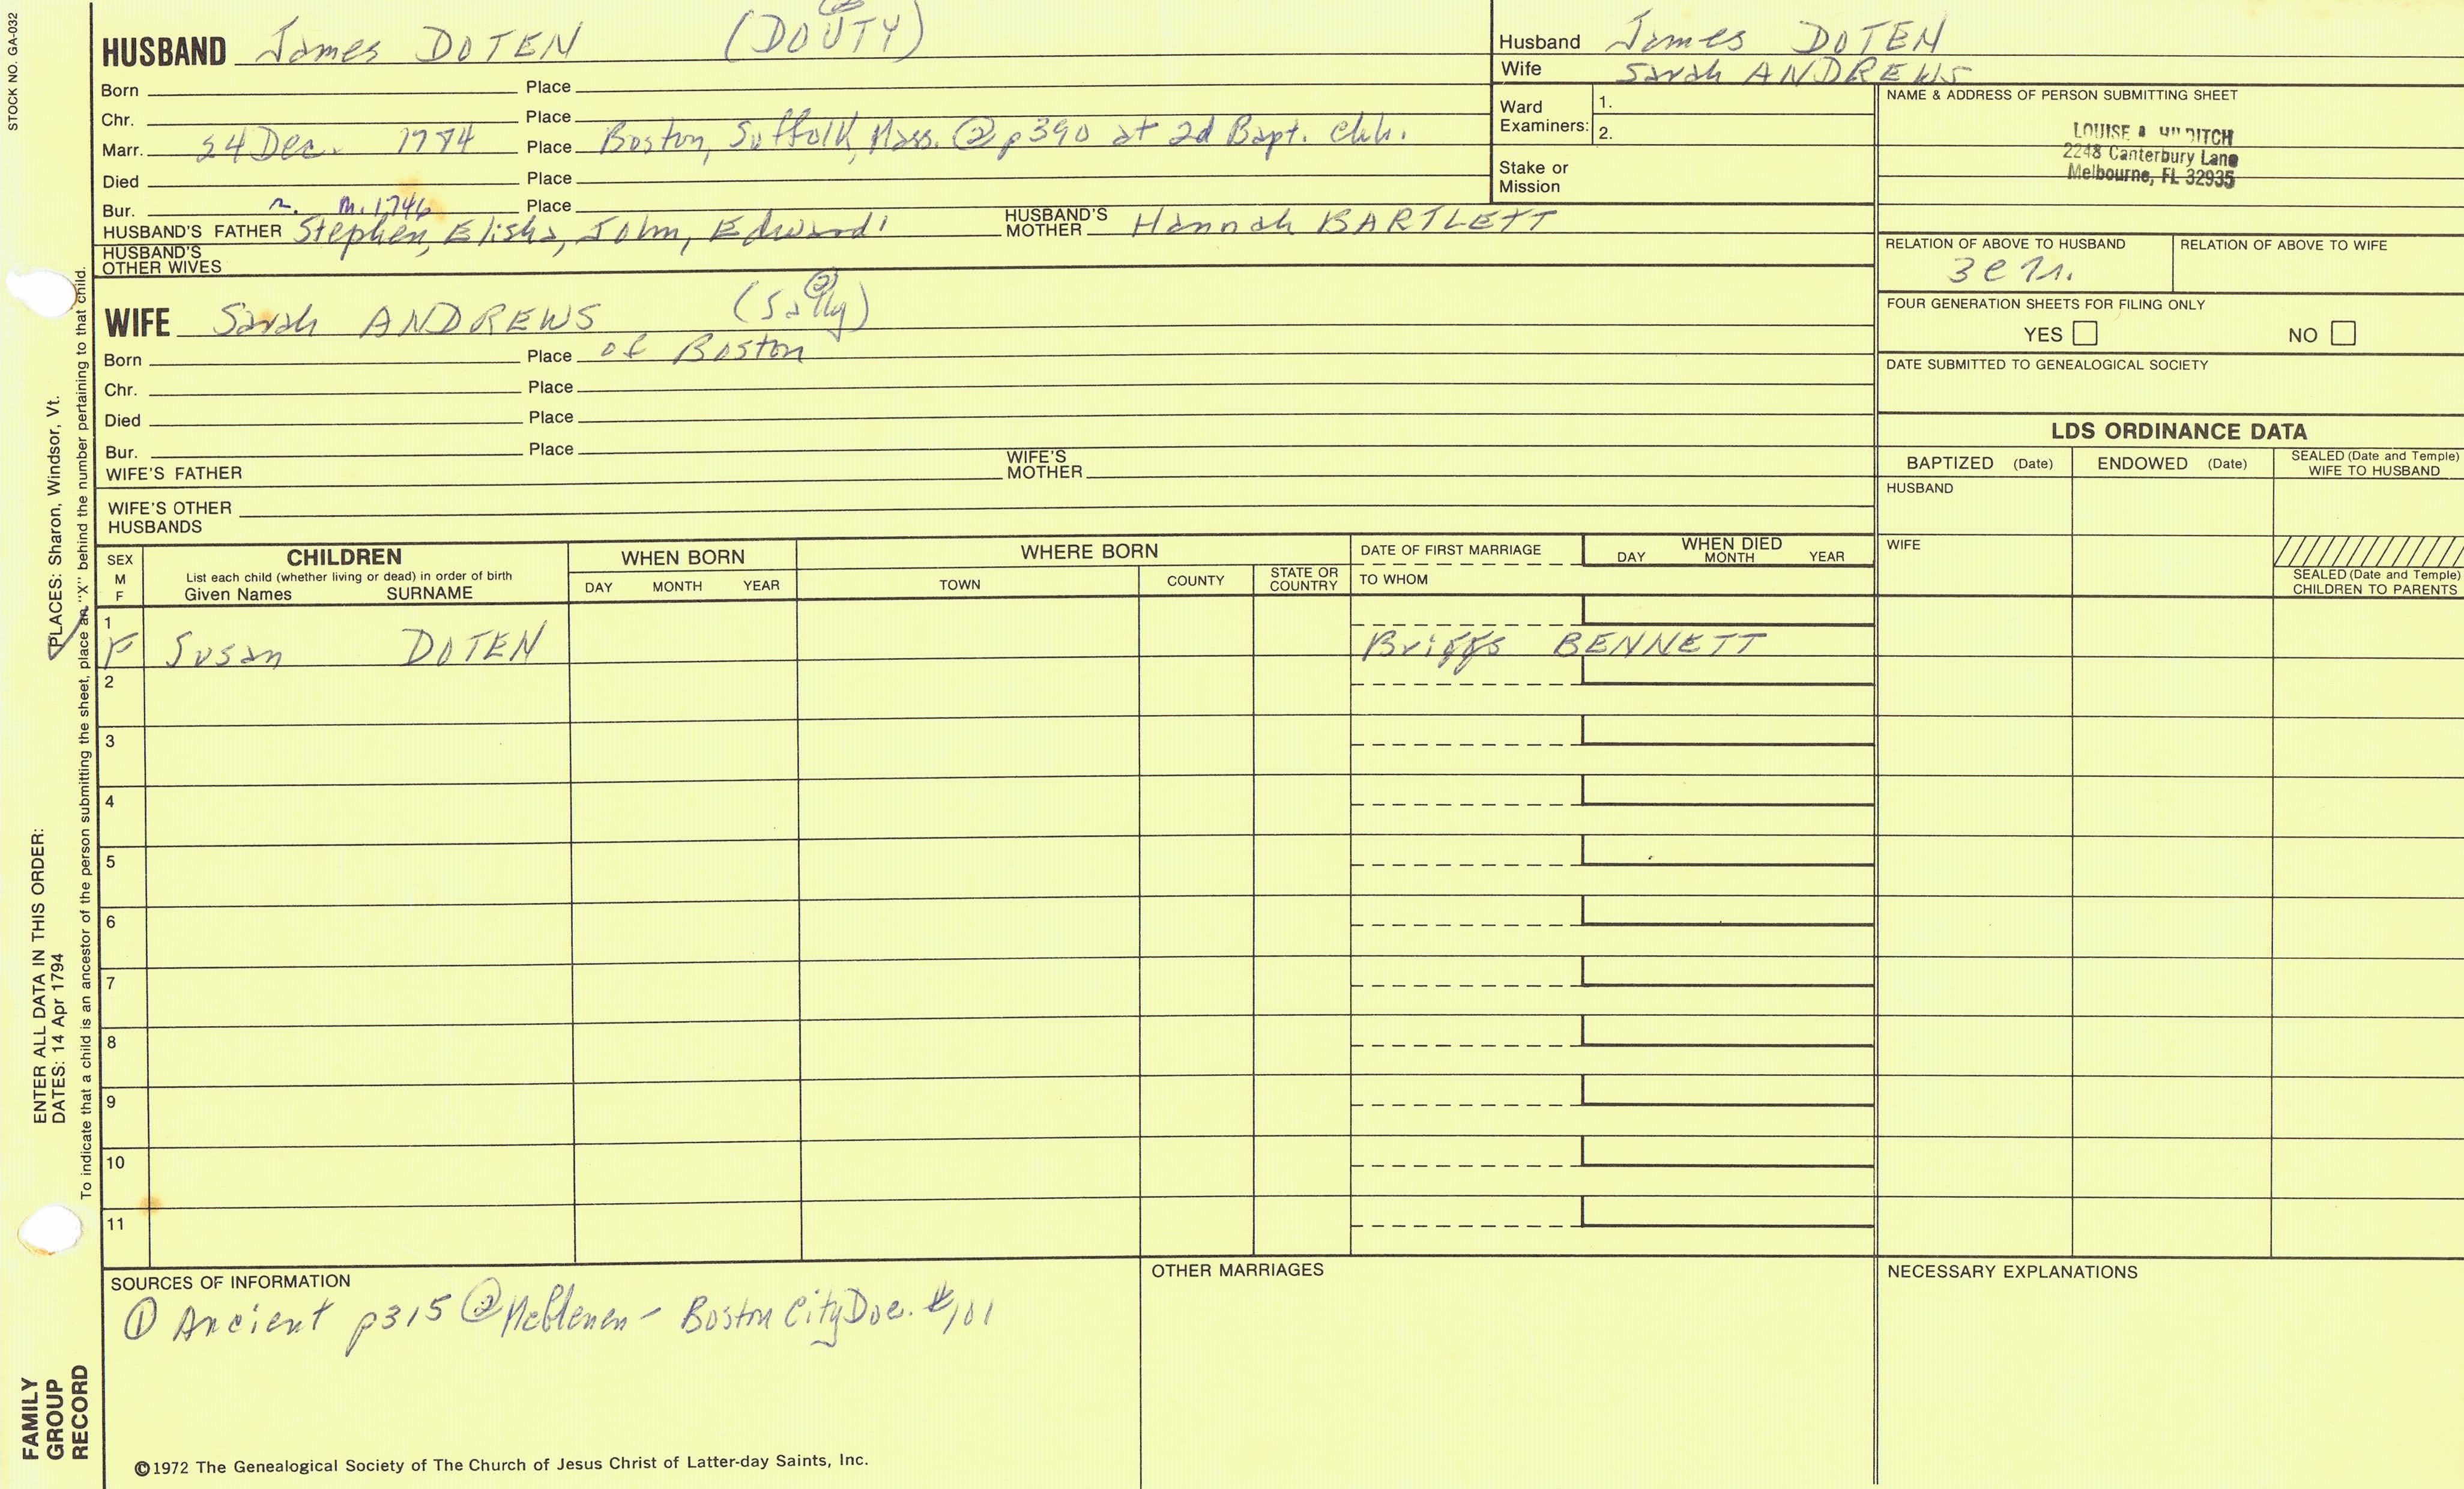 STOCK NO. GA-032
HUSBAND James DOTEN (DOUTY)
Born Place
Chr. Place
Marr. 24 Dec. Place Boston, Suffolk, Mass. ② p390 at 2d Bapt. chh.
Died Place
Bur. m. 1746 Place
HUSBAND'S FATHER Stephen, Elisha, John, Edward¹ HUSBAND'S MOTHER Hannah BARTLETT
HUSBAND'S OTHER WIVES
WIFE Sarah ANDREWS (Sally) ②
Born Place of Boston
Chr. Place
Died Place
Bur. Place
WIFE'S FATHER WIFE'S MOTHER
WIFE'S OTHER HUSBANDS
Husband James DOTEN
Wife Sarah ANDREWS
Ward Examiners: 1.
2.
Stake or Mission
NAME & ADDRESS OF PERSON SUBMITTING SHEET
LOUISE
2248 Canterbury Lane
Melbourne, FL 32935
RELATION OF ABOVE TO HUSBAND RELATION OF ABOVE TO WIFE
FOUR GENERATION SHEETS FOR FILING ONLY
YES NO
DATE SUBMITTED TO GENEALOGICAL SOCIETY
LDS ORDINANCE DATA
BAPTIZED (Date) ENDOWED (Date) SEALED (Date and Temple) WIFE TO HUSBAND
HUSBAND
WIFE
SEALED (Date and Temple) CHILDREN TO PARENTS
SEX M F
CHILDREN
List each child (whether living or dead) in order of birth
Given Names SURNAME
WHEN BORN
DAY MONTH YEAR
WHERE BORN
TOWN COUNTY STATE OR COUNTRY
DATE OF FIRST MARRIAGE
TO WHOM
WHEN DIED
DAY MONTH YEAR
1
F Susan DOTEN Briggs BENNETT
2
3
4
5
6
7
8
9
10
11
SOURCES OF INFORMATION
① Ancient p315 ② Boston City Doc. #101
OTHER MARRIAGES
NECESSARY EXPLANATIONS
©1972 The Genealogical Society of The Church of Jesus Christ of Latter-day Saints, Inc.
FAMILY GROUP RECORD
ENTER ALL DATA IN THIS ORDER:
DATES: 14 Apr 1794 PLACES: Sharon, Windsor, Vt.
To indicate that a child is an ancestor of the person submitting the sheet, place an "X" behind the number pertaining to that child.